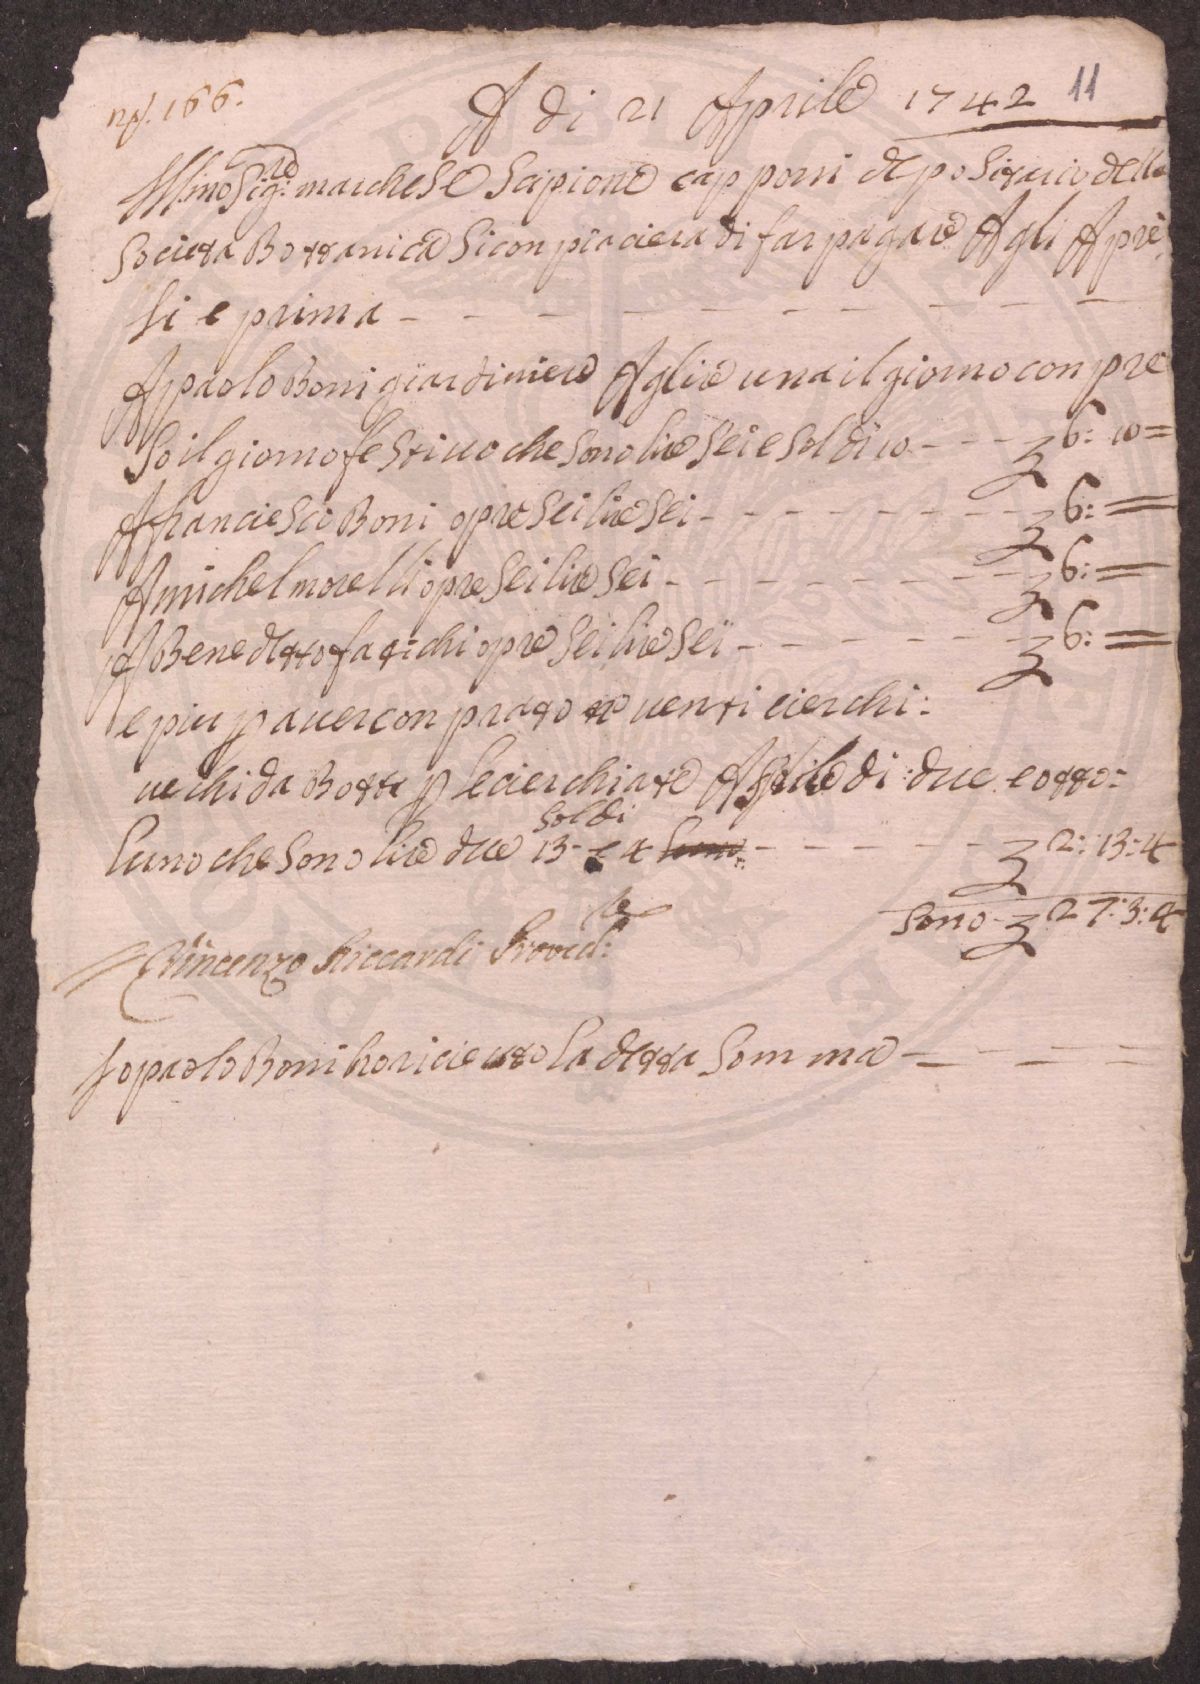 nº. 166.
A di 21 Aprile 1742 11
Ill:mo Sig:re marchese Scipione capponi depositario della
Societa Bottanica Si conpiaciera di far pagare Agli Apre
si e prima
A paolo Boni giardiniere A lire una il giorno conpre
so il giorno festiuo che sono lire sei e soldi 10 6: 10=
A franciesco Boni opre sei lire sei 6:=
A michel morelli opre sei lire sei 6:=
A Benedetto fatichi opre sei lire sei 6:=
e piu p auer conprato uenti cierchi:
uechi da Botte p le cierchiate A soldi di: due e otto:
luno che sono lire due soldi 13 e 4 luno 2: 13: 4
sono 27: 3: 4
Vincenzo Riccardi Proved:re
Io paolo Boni ho riceuto la detta somma
PUBLIC